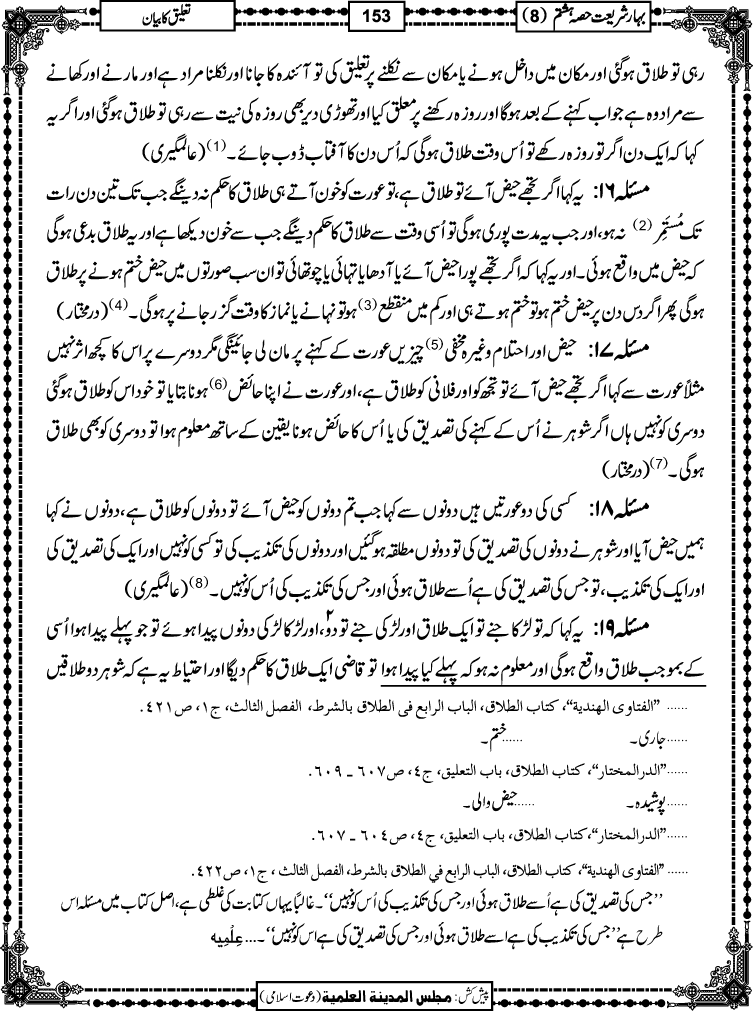 بہارِ شریعت حصہ ہشتم (8)
153
تعلیق کا بیان
رہی تو طلاق ہوگئی اور مکان میں داخل ہونے یا مکان سے نکلنے پر تعلیق کی تو آئندہ کا جانا اور نکلنا مراد ہے اور مارنے اور کھانے
سے مراد وہ ہے جو اب کہنے کے بعد ہوگا اور روزہ رکھنے پر معلق کیا اور تھوڑی دیر بھی روزہ کی نیت سے رہی تو طلاق ہوگئی اور اگر یہ
کہا کہ ایک دن اگر تو روزہ رکھے تو اُس وقت طلاق ہوگی کہ اُس دن کا آفتاب ڈوب جائے۔(1) (عالمگیری)
مسئلہ ۱۶: یہ کہا اگر تجھے حیض آئے تو طلاق ہے، تو عورت کو خون آتے ہی طلاق کا حکم نہ دینگے جب تک تین دن رات
تک مُستمِر (2) نہ ہو، اور جب یہ مدت پوری ہوگی تو اُسی وقت سے طلاق کا حکم دینگے جب سے خون دیکھا ہے اور یہ طلاق بدعی ہوگی
کہ حیض میں واقع ہوئی۔ اور یہ کہا کہ اگر تجھے پورا حیض آئے یا آدھا یا تہائی یا چوتھائی تو ان سب صورتوں میں حیض ختم ہونے پر طلاق
ہوگی پھر اگر دس دن پر حیض ختم ہو تو ختم ہوتے ہی اور کم میں منقطع(3) ہو تو نہانے یا نماز کا وقت گزر جانے پر ہوگی۔(4) (درمختار)
مسئلہ ۱۷: حیض اور احتلام وغیرہ مخفی (5) چیزیں عورت کے کہنے پر مان لی جائینگی مگر دوسرے پر اس کا کچھ اثر نہیں
مثلاً عورت سے کہا اگر تجھے حیض آئے تو تجھ کو اور فلانی کو طلاق ہے، اور عورت نے اپنا حائض(6) ہونا بتایا تو خود اس کو طلاق ہوگئی
دوسری کو نہیں ہاں اگر شوہر نے اُس کے کہنے کی تصدیق کی یا اُس کا حائض ہونا یقین کے ساتھ معلوم ہوا تو دوسری کو بھی طلاق
ہوگی۔(7) (درمختار)
مسئلہ ۱۸: کسی کی دو عورتیں ہیں دونوں سے کہا جب تم دونوں کو حیض آئے تو دونوں کو طلاق ہے، دونوں نے کہا
ہمیں حیض آیا اور شوہر نے دونوں کی تصدیق کی تو دونوں مطلقہ ہوگئیں اور دونوں کی تکذیب کی تو کسی کو نہیں اور ایک کی تصدیق کی
اور ایک کی تکذیب، تو جس کی تصدیق کی ہے اُسے طلاق ہوئی اور جس کی تکذیب کی اُس کو نہیں۔(8) (عالمگیری)
مسئلہ ۱۹: یہ کہا کہ تو لڑکا جنے تو ایک طلاق اور لڑکی جنے تو دو۲، اور لڑکا لڑکی دونوں پیدا ہوئے تو جو پہلے پیدا ہوا اُسی
کے بموجب طلاق واقع ہوگی اور معلوم نہ ہو کہ پہلے کیا پیدا ہوا تو قاضی ایک طلاق کا حکم دیگا اور احتیاط یہ ہے کہ شوہر دو طلاقیں
......"الفتاوی الھندیة"، کتاب الطلاق، الباب الرابع فی الطلاق بالشرط، الفصل الثالث، ج۱، ص۴۲۱.
......جاری۔ ......ختم۔
......"الدرالمختار"، کتاب الطلاق، باب التعلیق، ج٤، ص۶۰۷ ـ ۶۰۹.
......پوشیدہ۔ ......حیض والی۔
......"الدرالمختار"، کتاب الطلاق، باب التعلیق، ج٤، ص۶۰٤ ـ ۶۰۷.
......"الفتاوی الھندیة"، کتاب الطلاق، الباب الرابع فی الطلاق بالشرط، الفصل الثالث ، ج۱، ص۴۲۲.
"جس کی تصدیق کی ہے اُسے طلاق ہوئی اور جس کی تکذیب کی اُس کو نہیں"۔ غالباً یہاں کتابت کی غلطی ہے، اصل کتاب میں مسئلہ اس
طرح ہے "جس کی تکذیب کی ہے اسے طلاق ہوئی اور جس کی تصدیق کی ہے اس کو نہیں"۔... عِلْمِیہ
پیش کش: مجلس المدینة العلمیة (دعوت اسلامی)